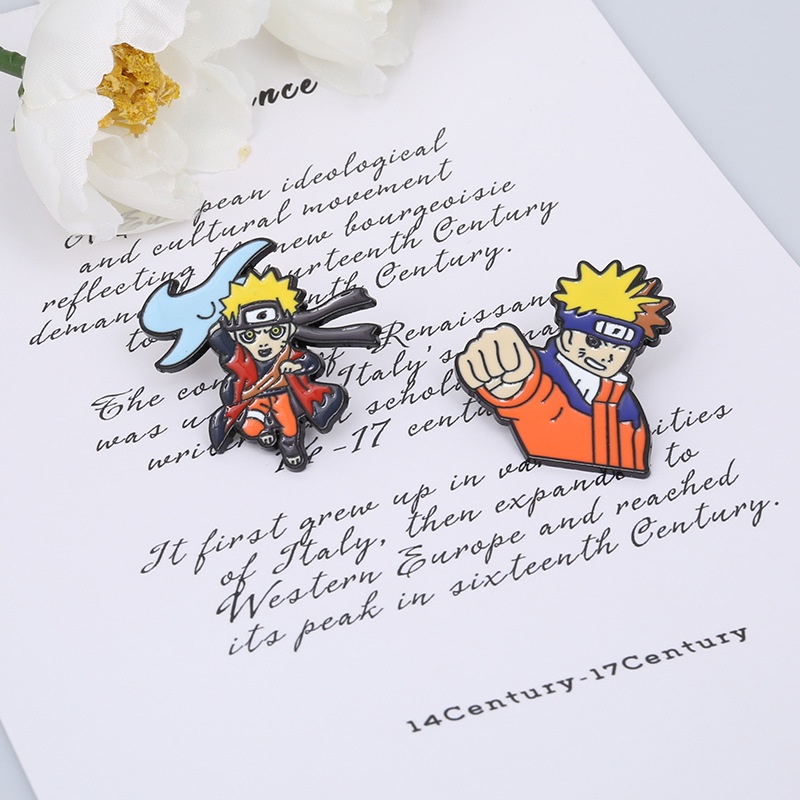 nce
pean ideological
and cultural movement
reflecting the new bourgeoisie
urteenth Century
to nth Century.
The con of Renaissan
was u Italy's
schol
-17 centu
It first grew up in va ities
of Italy, then expanded to
Western Europe and reached
its peak in sixteenth Century.
14Century-17Century